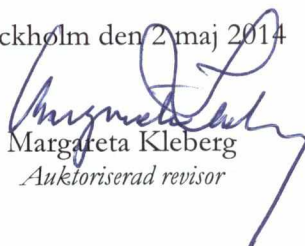 ckholm den 2 maj 2014
Margareta Kleberg
Auktoriserad revisor